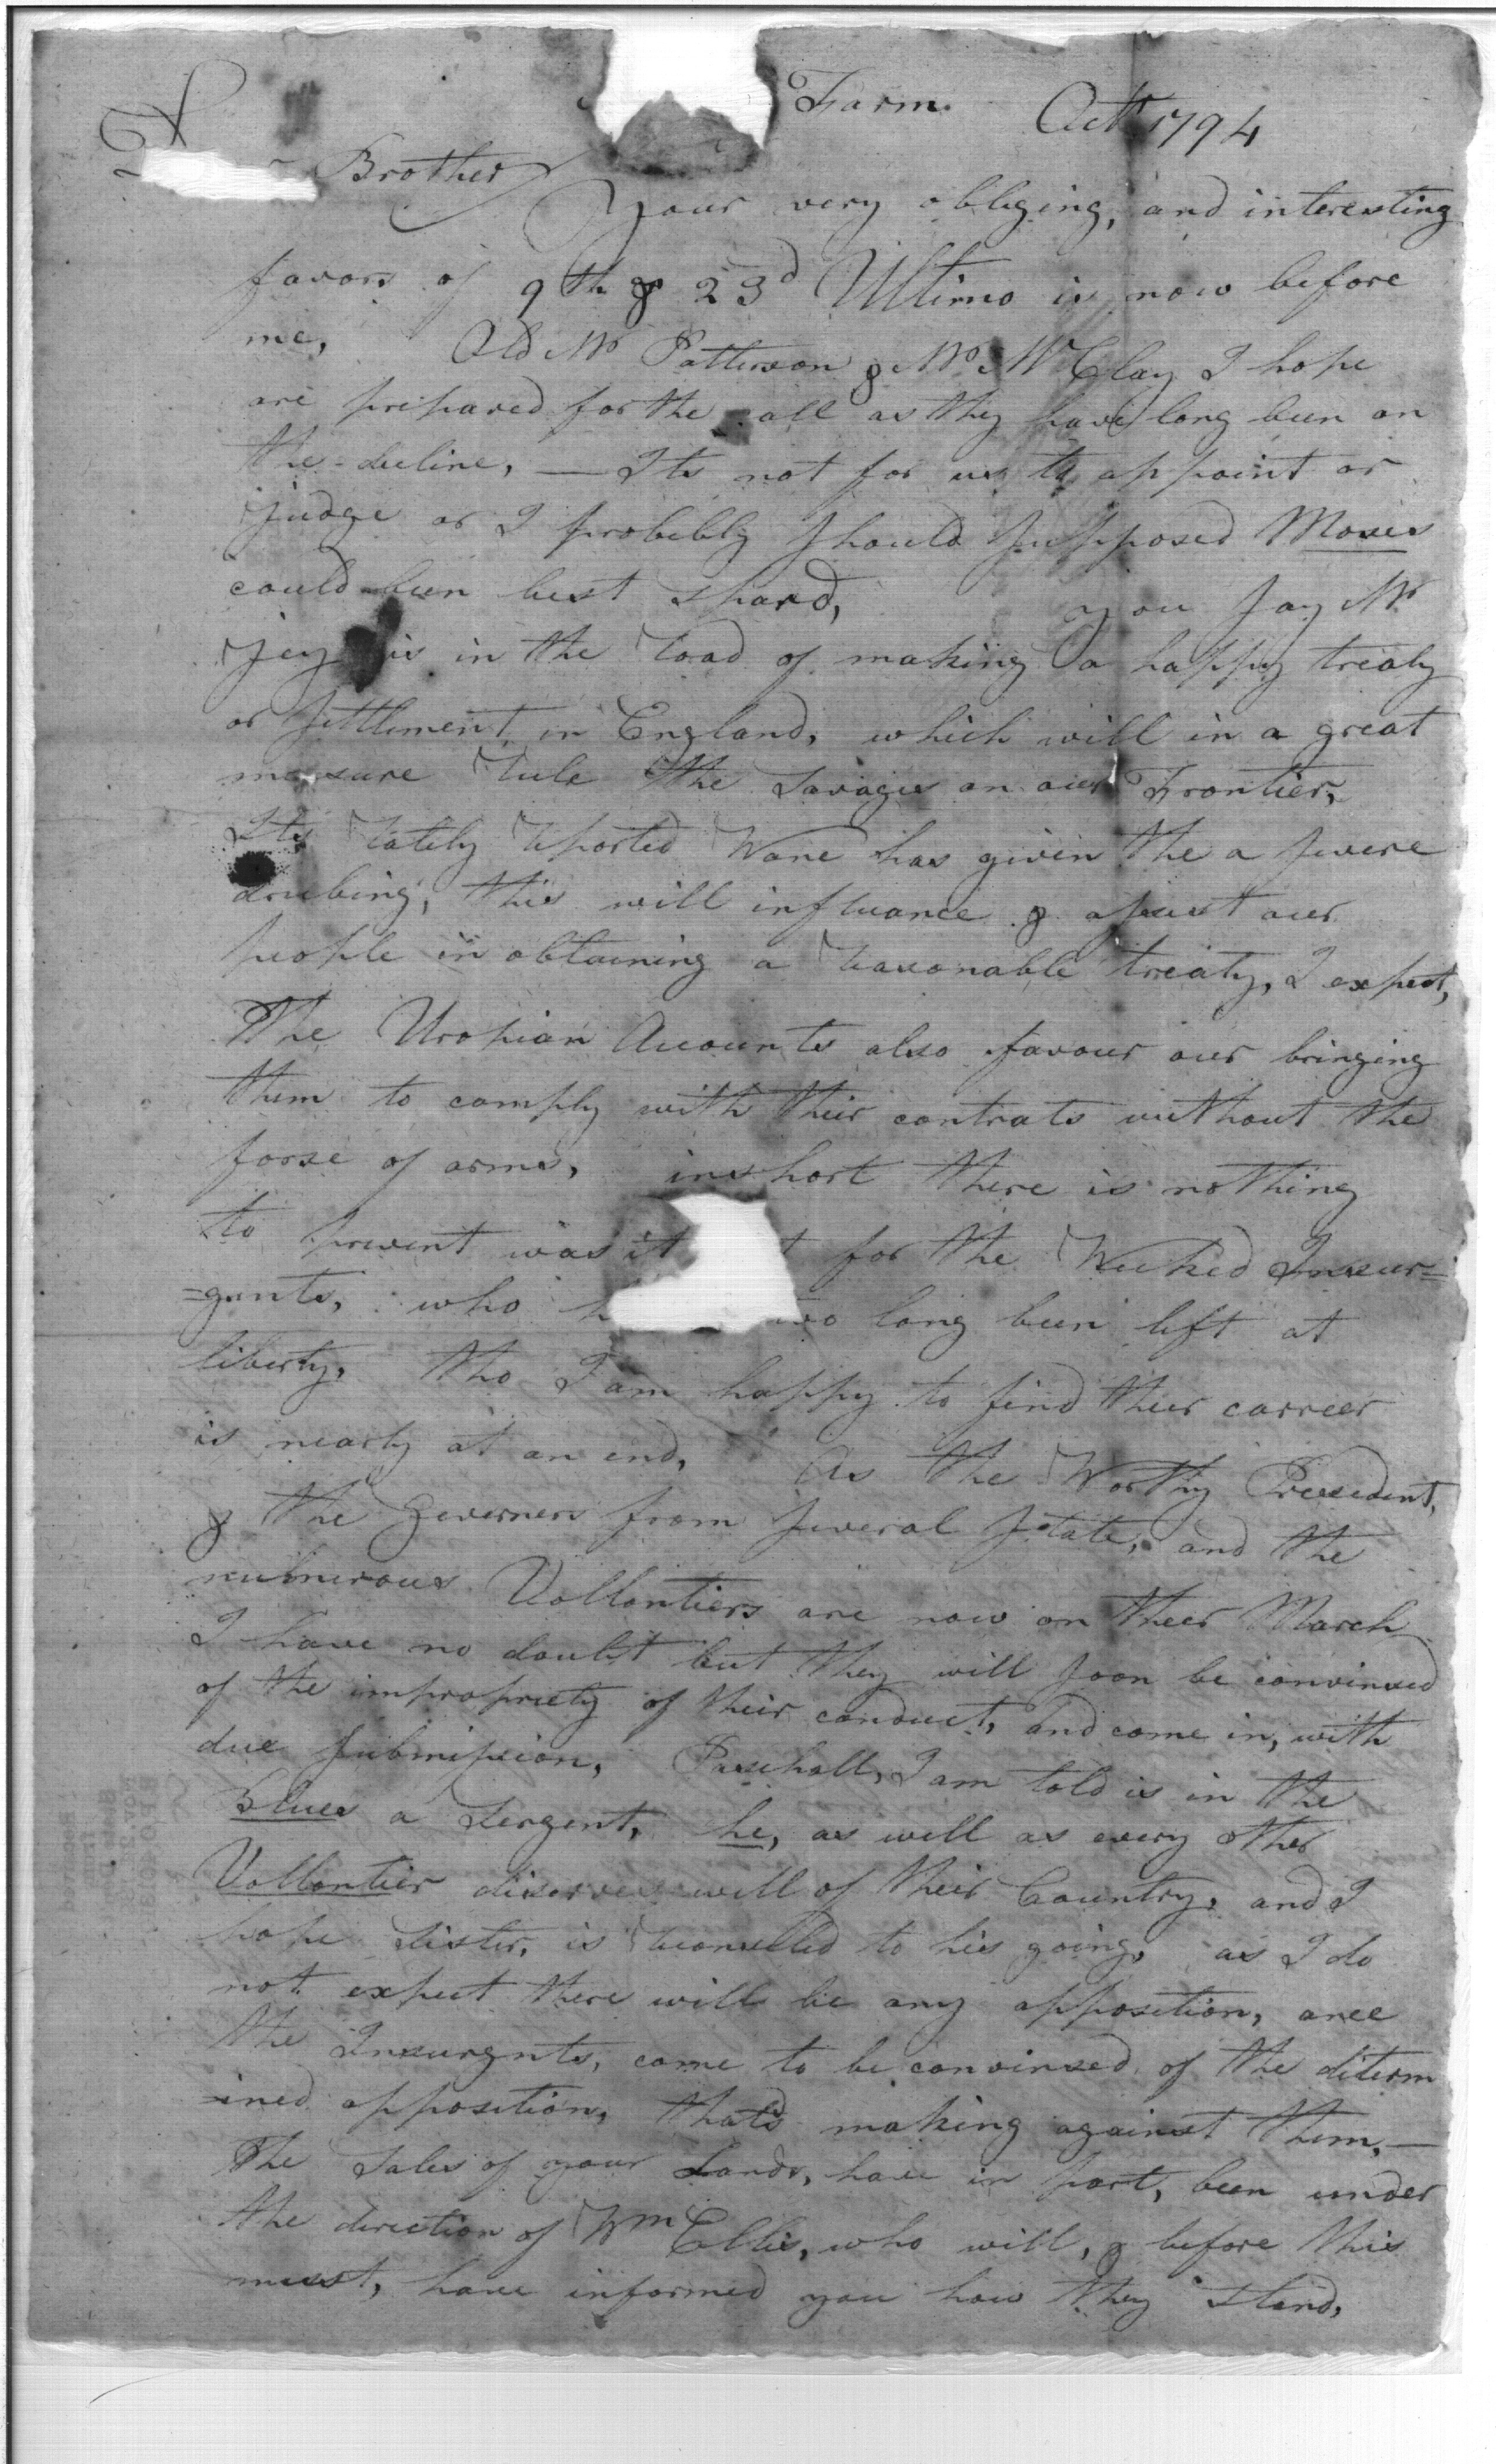 Farm. Octr 1794
D Brother
Your very obliging, and interesting
favors of 9th & 23d Ultimo is now before
me, Old Mr Patterson & Mr McClay I hope
are prepared for the call as they have long been on
the decline, — Its not for us to appoint or
judge or I probebly should supposed Moses
could been best spard, you say Mr
Jey is in the road of making a happy treaty
or settlement in England, which will in a great
measure rule the Savages on our Frontier,
Its lately reported Wane has given the a severe
drubing, this will influance & assist our
people in obtaining a reasonable treaty, I expect,
The Uropian Accounts also favour our bringing
them to comply with their contrats without the
forse of arms, inshort there is nothing
to prevent was it for the Wicked Insur=
=gents, who too long been lift at
liberty, tho I am happy to find their carreer
is nearly at an end, As the Worthy Presedent,
& the Governers from several State, and the
numerous Vollontiers are now on their March
I have no doubt but they will soon be convinsed
of the impropriety of their conduct, and come in, with
due submission, Paschall, I am told is in the
Blues a Sergent, he, as well as every other
Vollontier disarves well of their Country, and I
hope Sister, is reconselled to his going, as I do
not expect there will be any opposition, once
the Insurgnts, come to be convinsed of the diterm
-ined opposition, thats making against them, —
The Sales of your Lands, have in part, been under
the direction of Wm Ellis, who will, & before this
must, have informed you how they stand,